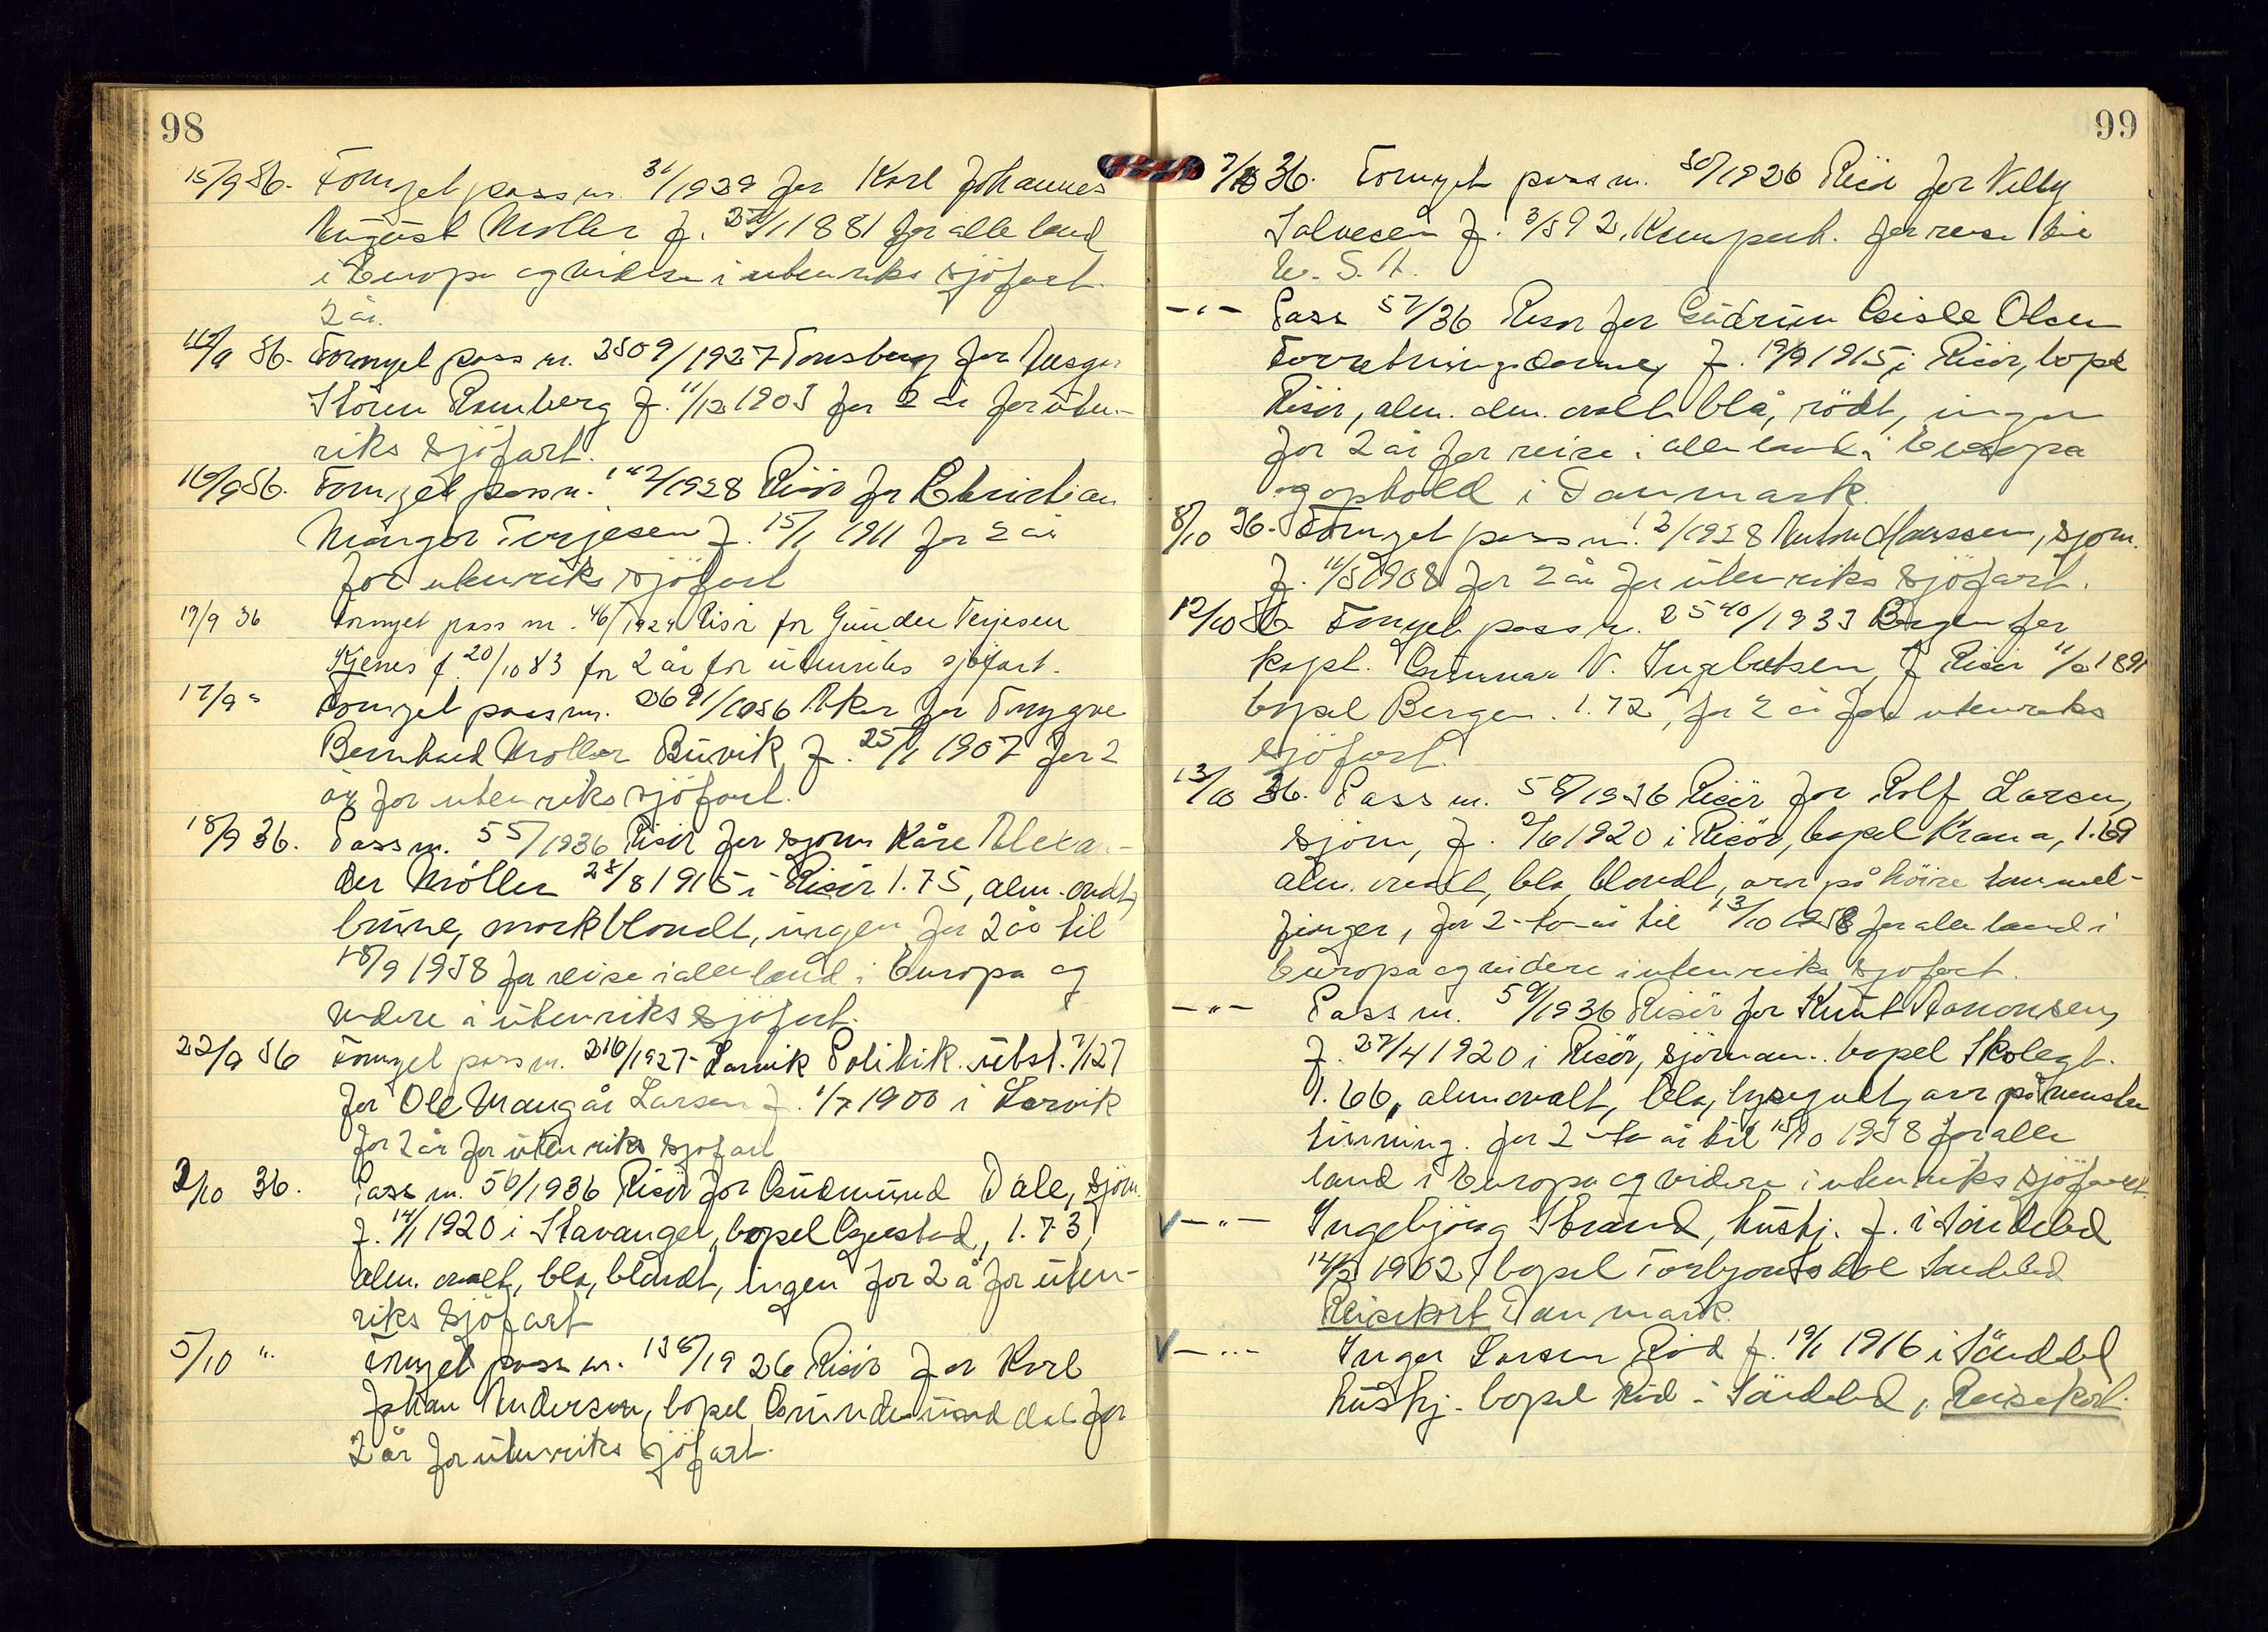 98
15/9 36. Fornyet pass nr. 31/1929 for Karl Johannes
August Møller f. 27/1 1881 for alle land
i Europa og videre i utenriks sjöfart.
2 år.
16/9 36. Fornyet pass nr. 2509/1927 Tönsberg for
Stören Romberg f. 11/12 1903 for 2 år for uten-
riks sjöfart.
16/9 36. Fornyet pass nr. 147/1928 Risör for Christian
Terjesen f. 15/1 1911 for 2 år
for utenriks sjöfart
17/9 36 Fornyet pass nr. 46/1924 Risör for Gunder Terjesen
Kjenes f. 20/10 83 for 2 år for utenriks sjöfart.
17/9 " Fornyet pass nr. Aker for Trygve
Bernhard Møller Buvik f. 25/1 1907 for 2
år for utenriks sjöfart.
18/9 36. Pass nr. 55/1936 Risör for sjöm. Kåre Alexan-
der Möller 28/8 1915 i Risör 1.75, alm. ovalt,
brune, mörkblondt, ingen for 2 år til
18/9 1938 for reise i alle land i Europa og
videre i utenriks sjöfart.
22/9 36 Fornyet pass nr. 216/1927 Larvik Politik. utst. 7/1 27
for Ole Larsen f. 1/7 1900 i Larvik
for 2 år for utenriks sjöfart
2/10 36. Pass nr. 56/1936 Risör for Gudmund Dale, sjöm.
f. 14/1 1920 i Stavanger, bopel Gjerstad, 1.73,
alm. ovalt, blå, blondt, ingen for 2 å for uten-
riks sjöfart
5/10 ". Fornyet pass nr. 138/1926 Risör for Karl
Johan Anderson, bopel for
2 år for utenriks sjöfart.
99
7/10 36. Fornyet pass nr. 30/1926 Risör for Villy
Salvesen f. 3/5 92, for reise til
U. S. A.
— " — Pass 57/36 Risör for Gudrun Gisle Olsen
Forretningsdame, f. 19/9 1915 i Risör, bopel
Risör, alm. alm. ovalt blå, rödt, ingen
for 2 år for reise i alle land i Europa
og ophold i Danmark.
8/10 36. Fornyet pass nr. 12/1928 Anton Hanssen, sjöm.
f. 11/5 1908 for 2 år for utenriks sjöfart.
12/10 36 Fornyet pass nr. 2540/1933 Bergen for
kapt. Gunnar N. Ingebretsen, f. Risör 11/2 1891
bopel Bergen. 1.72, for 2 år for utenriks
sjöfart.
13/10 36. Pass nr. 58/1936 Risör for Rolf Larsen,
sjöm, f. 2/6 1920 i Risör, bopel Krana, 1.69
alm. ovalt, blå, blondt, arr på höire tommel-
finger, for 2 - to - år til 13/10 1938 for alle land i
Europa og videre i utenriks sjöfart.
— " — Pass nr. 59/1936 Risör for Knut Aanonsen,
f. 27/4 1920 i Risör, sjömann. bopel Skolegt.
1.66, alm ovalt, blå, lysegult, arr på venstre
tinning. for 2 - to år til 13/10 1938 for alle
land i Europa og videre i utenriks sjöfart.
V — " — Ingebjörg Strand, hushj. f. i Söndeled
14/2 1902, bopel Söndeled
Reisekort Danmark.
V — " — Inger Larsen Röd f. 19/1 1916 i Söndeled
hushj. bopel Röd i Söndeled, Reisekort.